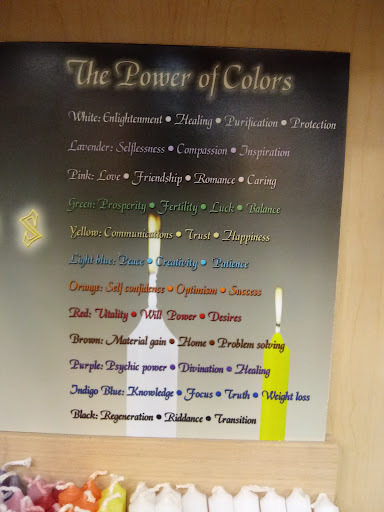 The Power of Colors
White: Enlightenment • Healing • Purification • Protection
Lavender: Selflessness • Compassion • Inspiration
Pink: Love • Friendship • Romance • Caring
Green: Prosperity • Fertility • Luck • Balance
Yellow: Communications • Trust • Happiness
Light blue: Peace • Creativity • Patience
Orange: Self confidence • Optimism • Success
Red: Vitality • Will Power • Desires
Brown: Material gain • Home • Problem solving
Purple: Psychic power • Divination • Healing
Indigo Blue: Knowledge • Focus • Truth • Weight loss
Black: Regeneration • Riddance • Transition